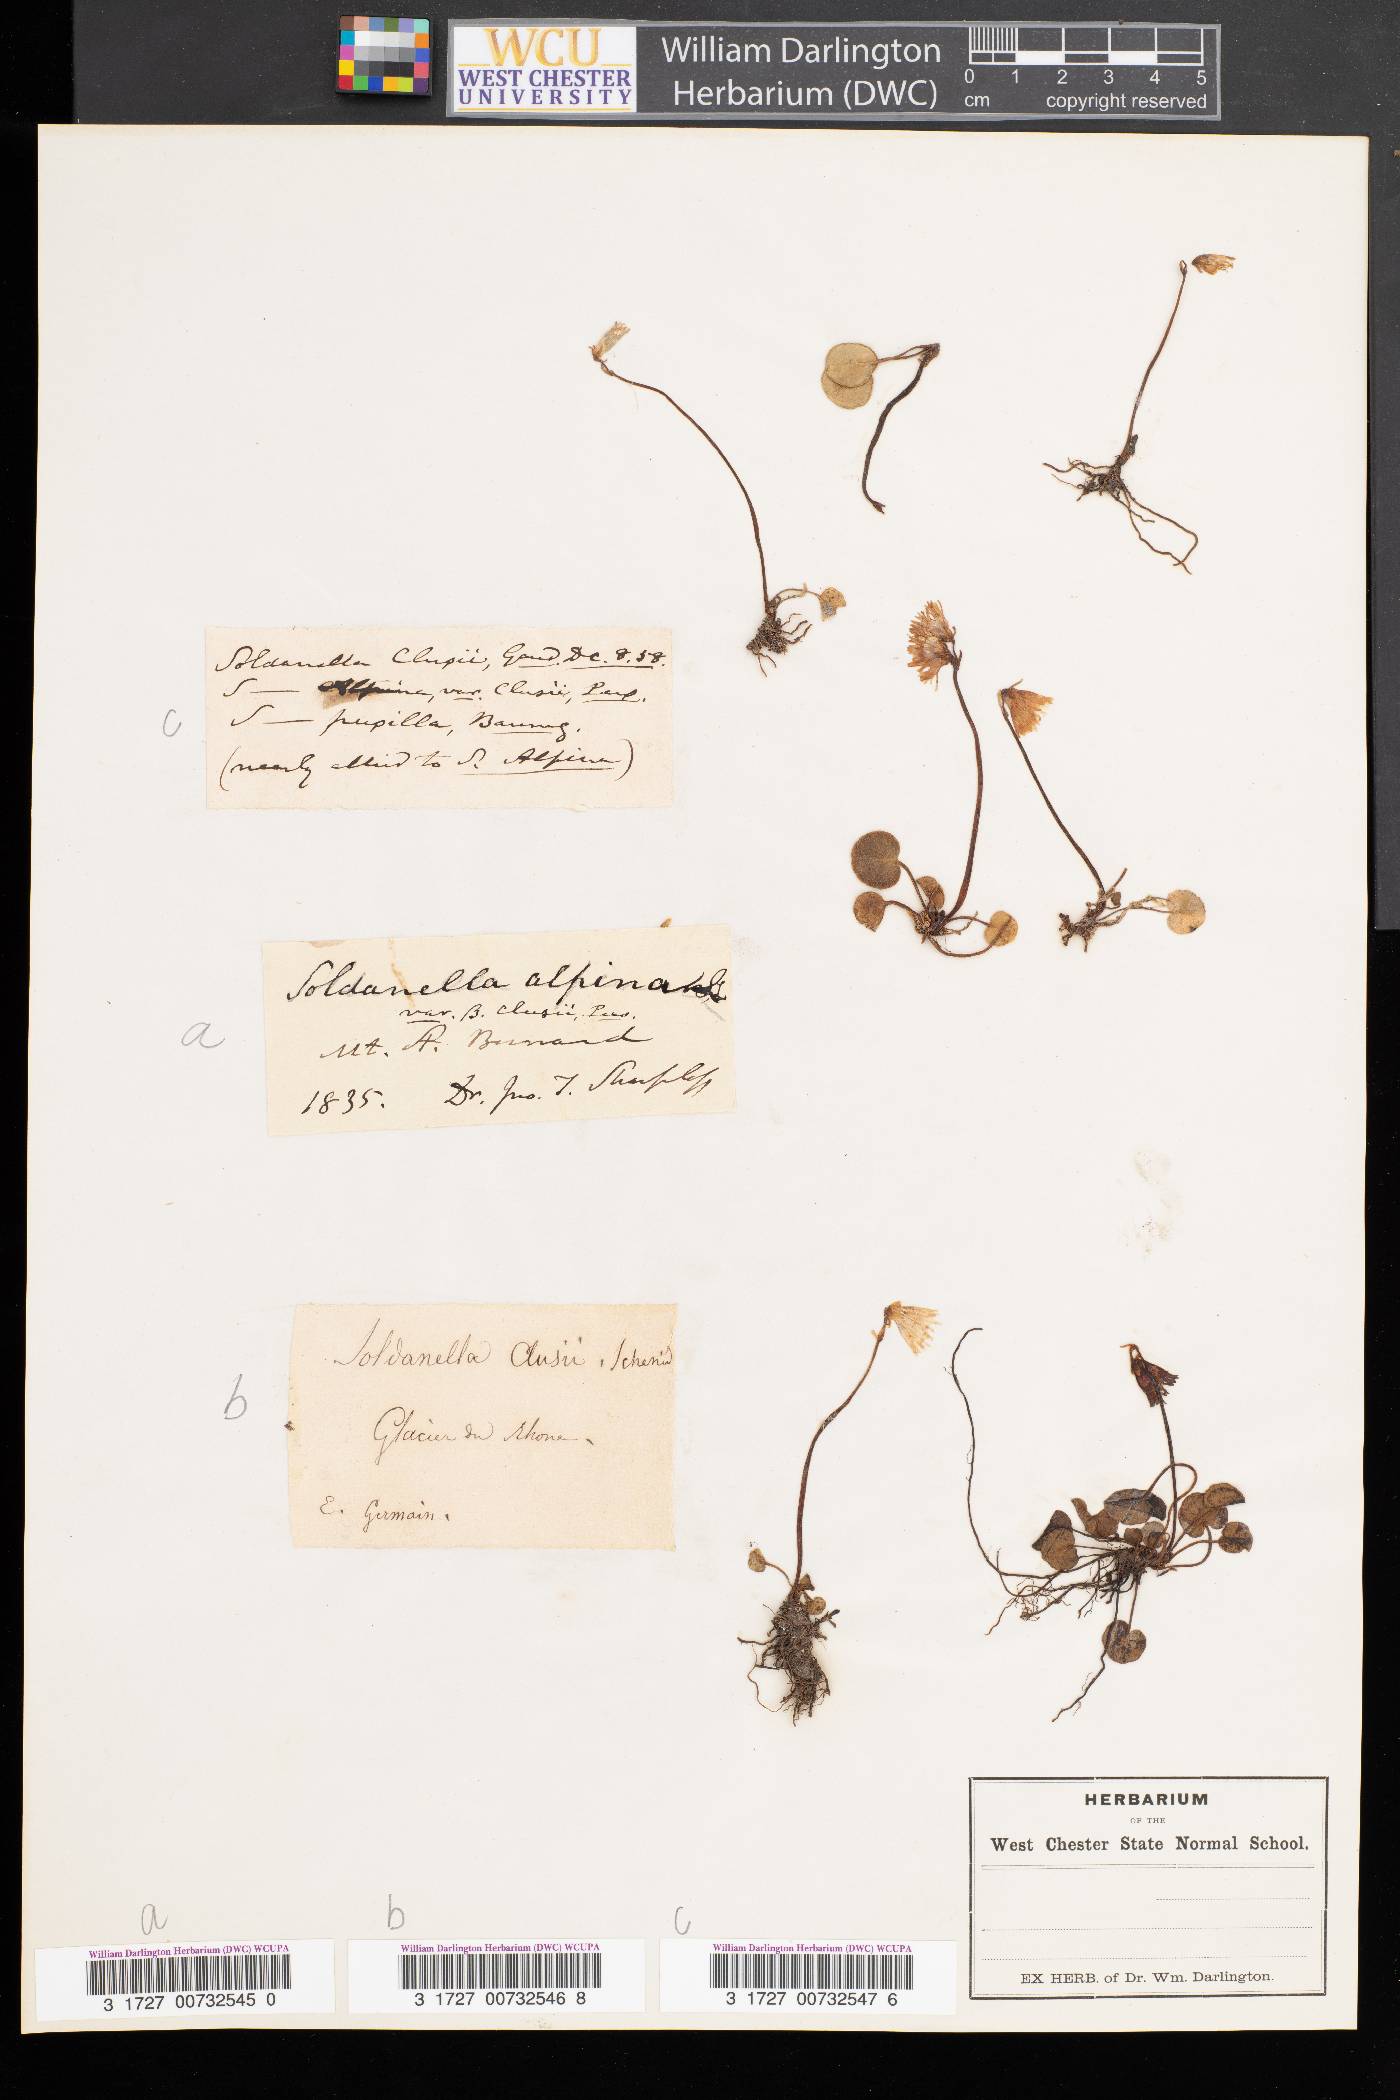 WCU
WEST CHESTER
UNIVERSITY
William Darlington
Herbarium (DWC)
0 1 2 3 4 5
cm copyright reserved
Soldanella Clusii, Gaud. DC. 8. 58.
S— Alpina, var. Clusii,
S— pusilla, Baumg.
(nearly allied to S. Alpina)
c
Soldanella alpina
var. B. Clusii,
Mt. St. Bernard
1835. Dr. Jno. T. Sharpless
a
Soldanella Clusii,
Glacier du Rhone.
E. Germain.
b
HERBARIUM
OF THE
West Chester State Normal School.
EX HERB. of Dr. Wm. Darlington.
a
William Darlington Herbarium (DWC) WCUPA
3 1727 00732545 0
b
William Darlington Herbarium (DWC) WCUPA
3 1727 00732546 8
c
William Darlington Herbarium (DWC) WCUPA
3 1727 00732547 6